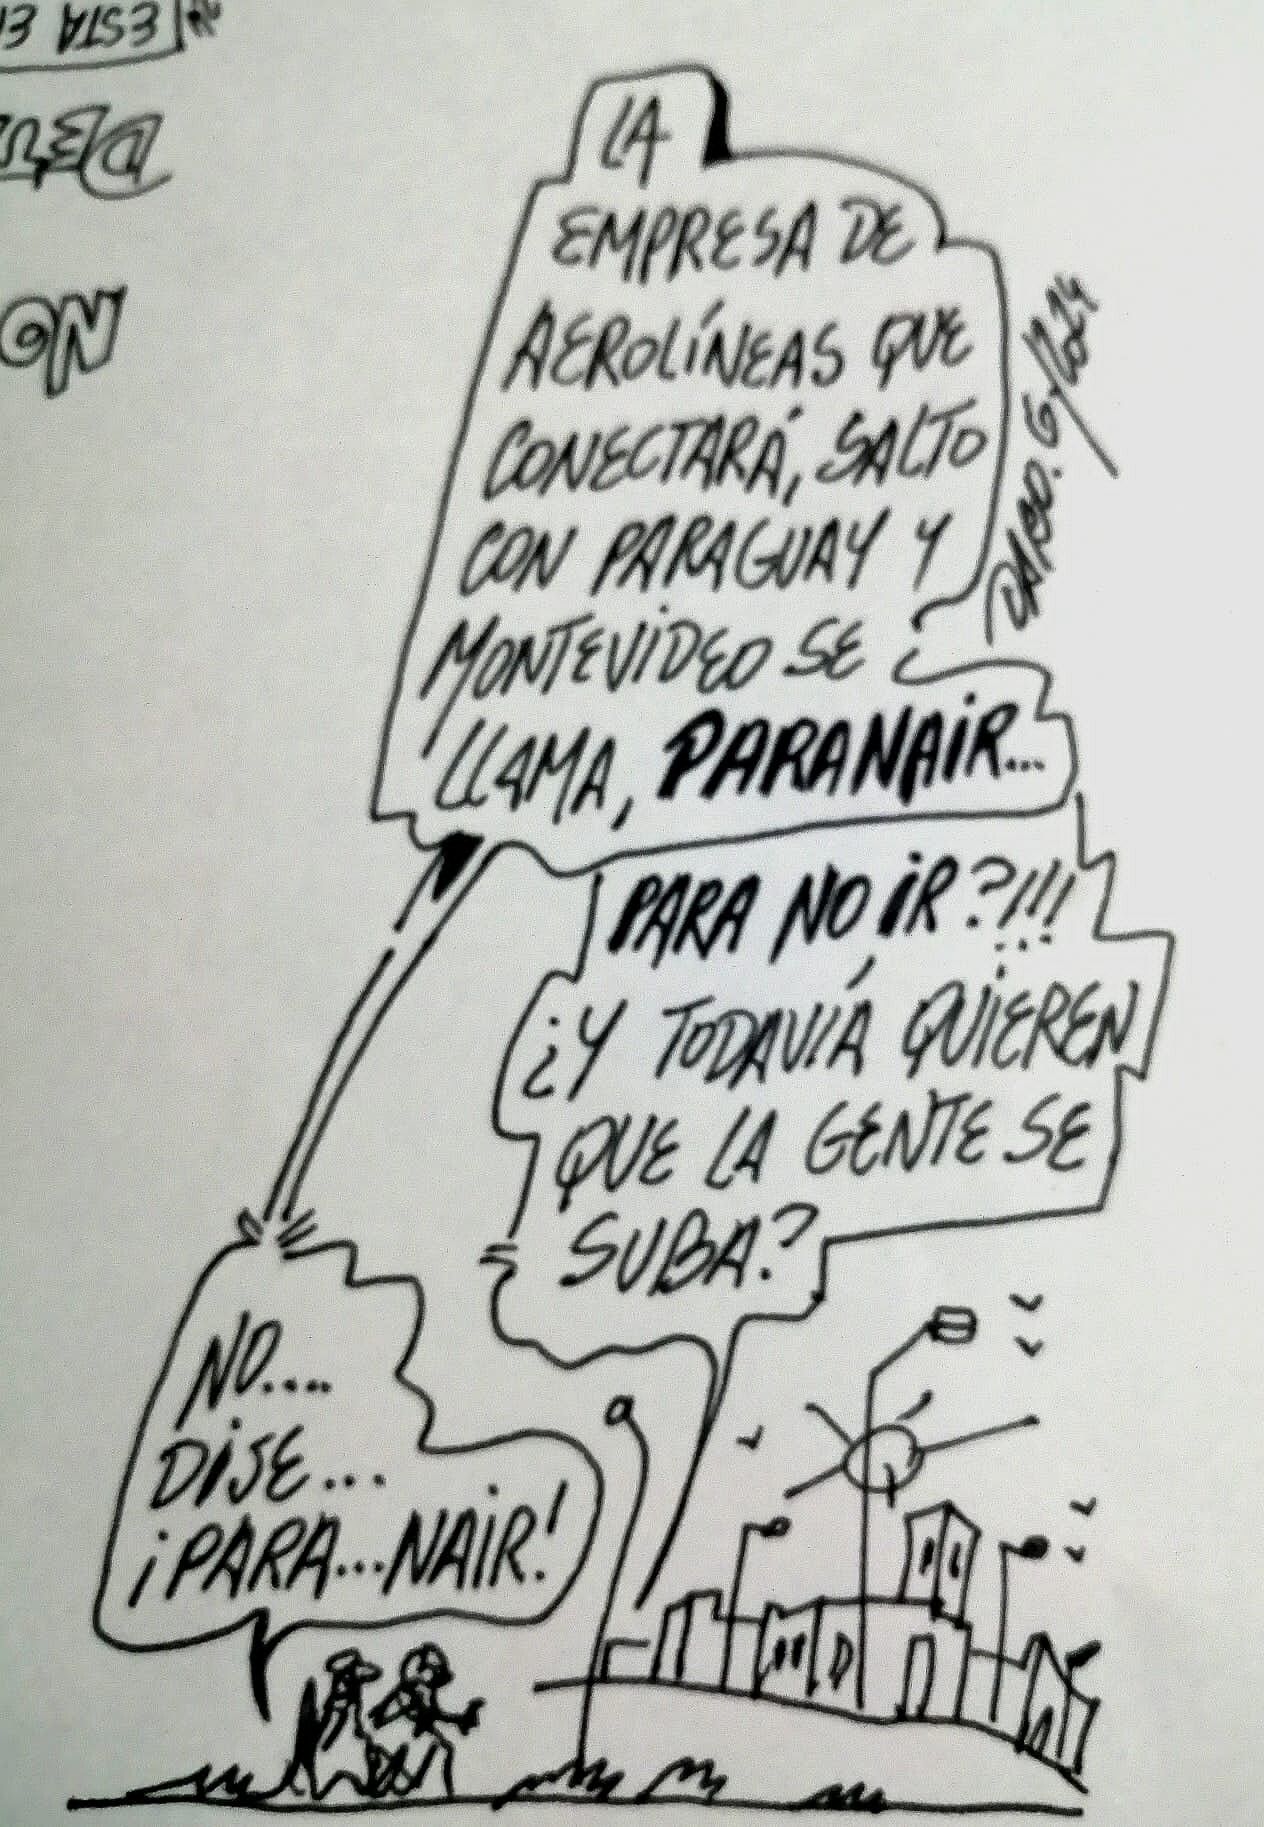 LA
EMPRESA DE
AEROLÍNEAS QUE
CONECTARÁ, SALTO
CON PARAGUAY Y
MONTEVIDEO SE
LLAMA, PARANAIR...
PARA NO IR?!!!
¿Y TODAVÍA QUIEREN
QUE LA GENTE SE
SUBA?
NO....
DISE...
¡PARA...NAIR!
ESTA